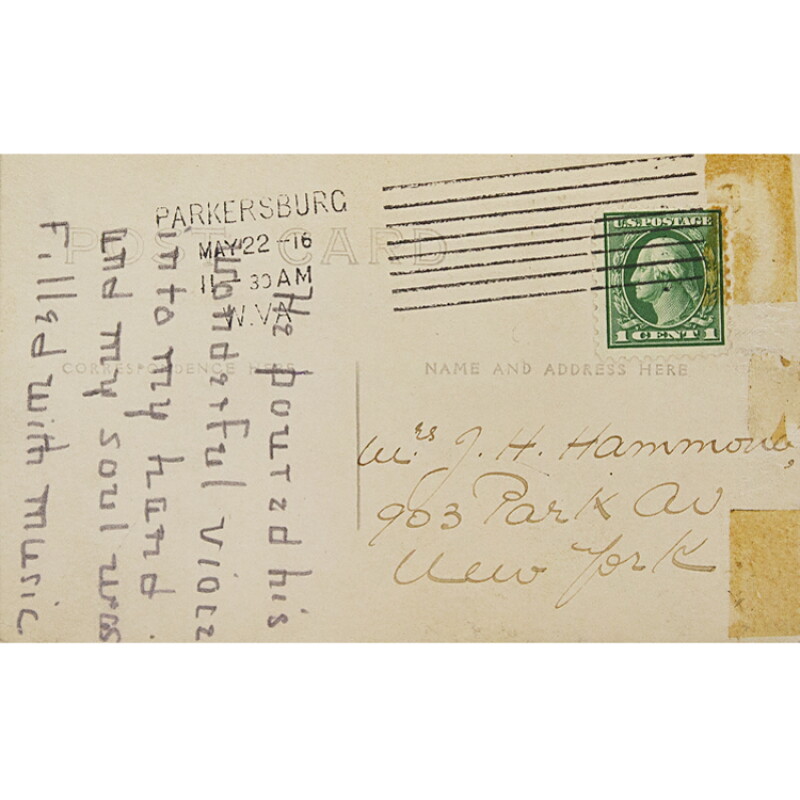 PARKERSBURG
MAY 22 -16
11 30 AM
W.VA
U.S. POSTAGE
1 CENT 1
POST CARD
CORRESPONDENCE HERE
NAME AND ADDRESS HERE
He poured his
Wonderful Voice
into my heard
and my soul was
Filled with Music
Mrs J. H. Hammond
903 Park Av
New York